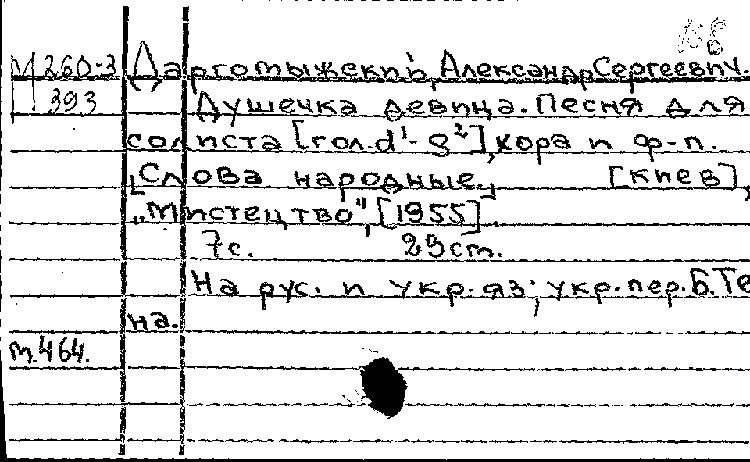 М260-3 Даргомыжский, Александр Сергеевич.
393 Душечка девица. Песня для
солиста [гол. d¹-g²], хора и ф-п.
[Слова народные] [Киев],
„Мистецтво", [1955]
7с. 29 cm.
На рус. и укр. яз; укр. пер. Б. Те
на.
т.464.